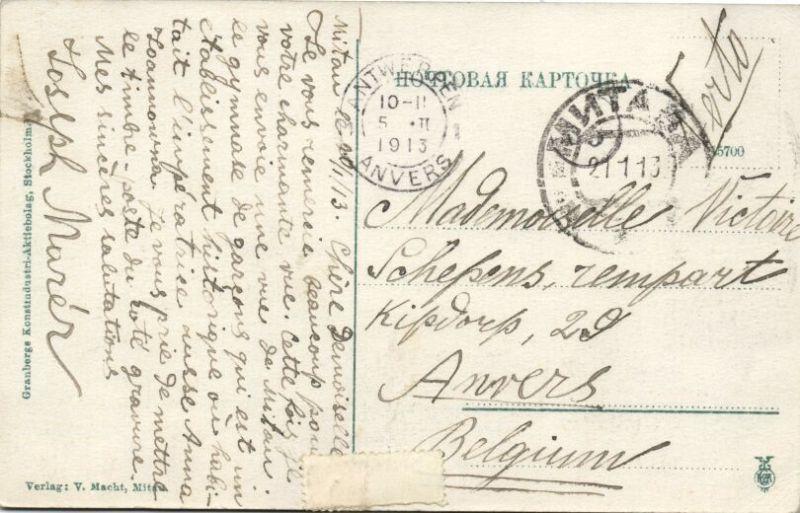 Mitau le 20/1/13. Chère Demoiselle
Je vous remercie beaucoup pour
votre charmante vue. Cette fois je
vous envoie une vue de Mitau:
le gymnase de garçons qui est un
établissement historique où habi-
tait l'impératrice russe Anna
Ioannowna. Je vous prie de mettre
le timbre-poste du coté gravure.
Mes sincères salutations
Joseph Murér
ПОЧТОВАЯ КАРТОЧКА
ANTWERPEN
10-11
5 II
1913
ANVERS
МИТАВА
21 1 13
5700
Mademoiselle Victoire
Schepens, rempart
Kipdorp, 29
Anvers
Belgium
Granbergs Konstindustri-Aktiebolag, Stockholm.
Verlag: V. Macht, Mitau